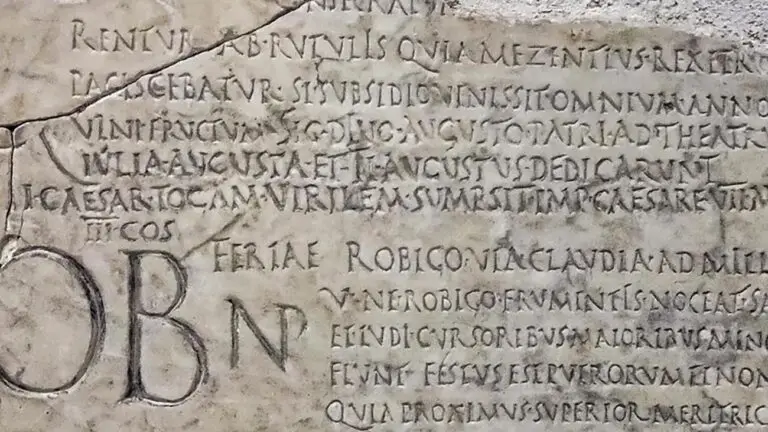 RENTVR·AB·RVTVLIS QVIA MEZENTIVS·REX ETRV
PACISCEBATVR·SI SVBSIDIO VENISSET OMNIVM·ANNO
VINI FRVCTVM·SIG·DIVO·AVGVSTO·PATRI·AD·THEATRV
IVLIA·AVGVSTA·ET·TI·AVGVSTVS·DEDICARVNT
I·CAESAR·TOGAM·VIRILEM·SVMPSIT·IMP·CAESARE·VII·M
III·COS
OB NP FERIAE ROBIGO·VIA·CLAVDIA·AD MILL
V·NE·ROBIGO·FRVMENTIS·NOCEAT·SA
ET·LVDI·CVRSORIBVS·MAIORIBVS·MINO
FIVNT·FESTVS·EST·PVERORVM·LENON
QVIA PROXIMVS·SVPERIOR·MERETRIC